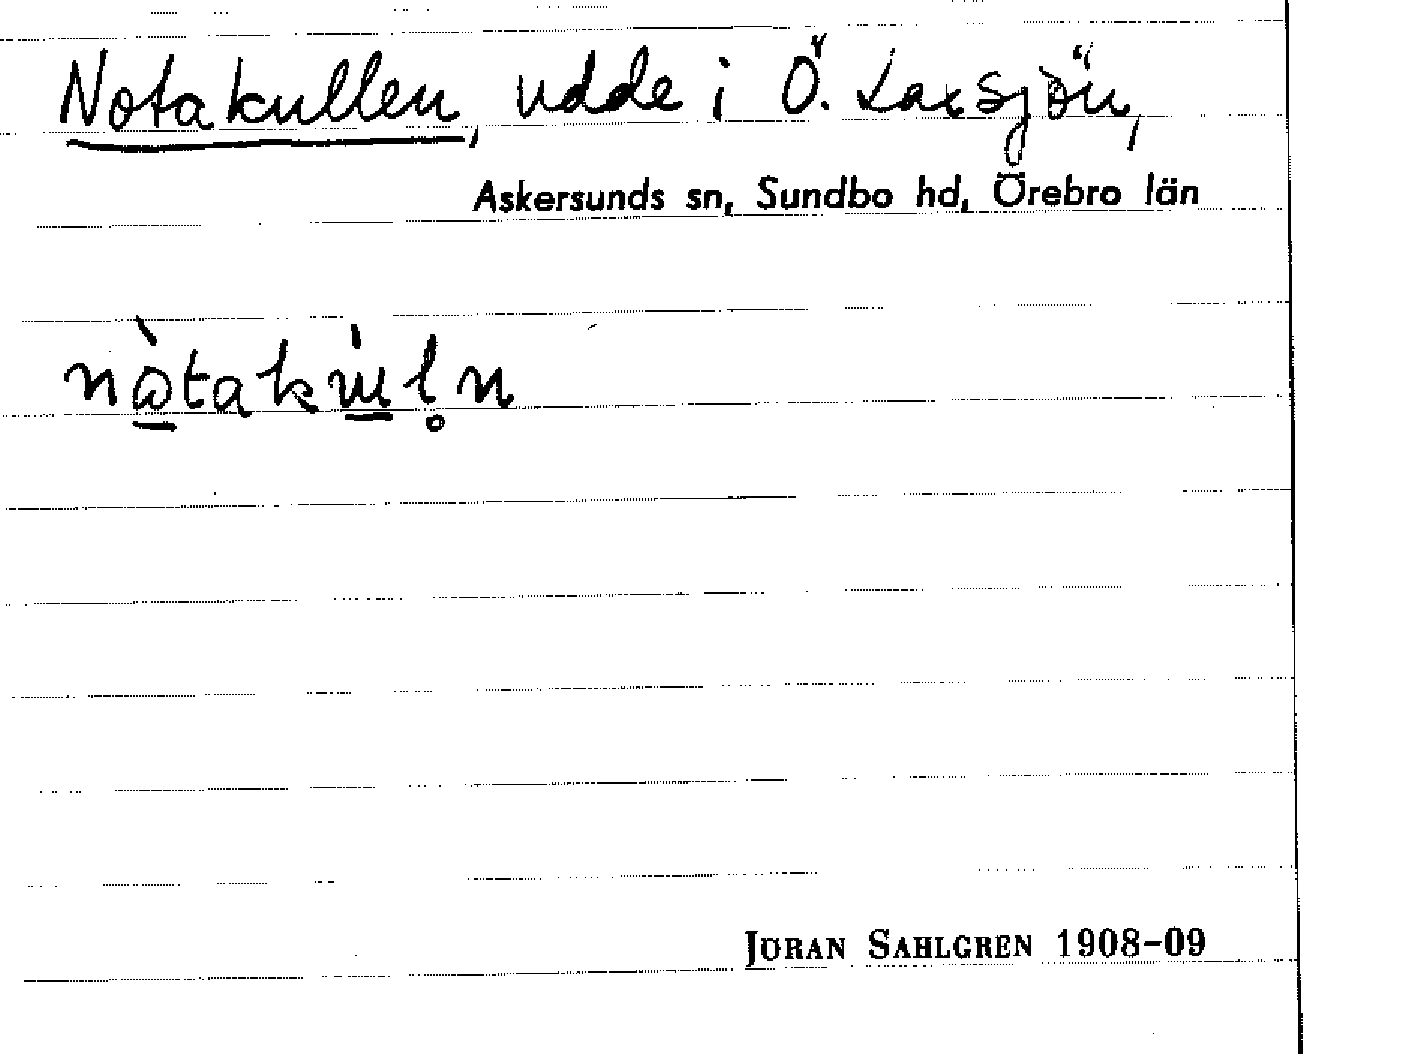 Notakullen, udde i Ö. Laxsjön,
Askersunds sn, Sundbo hd, Örebro län
JÖRAN SAHLGREN 1908-09